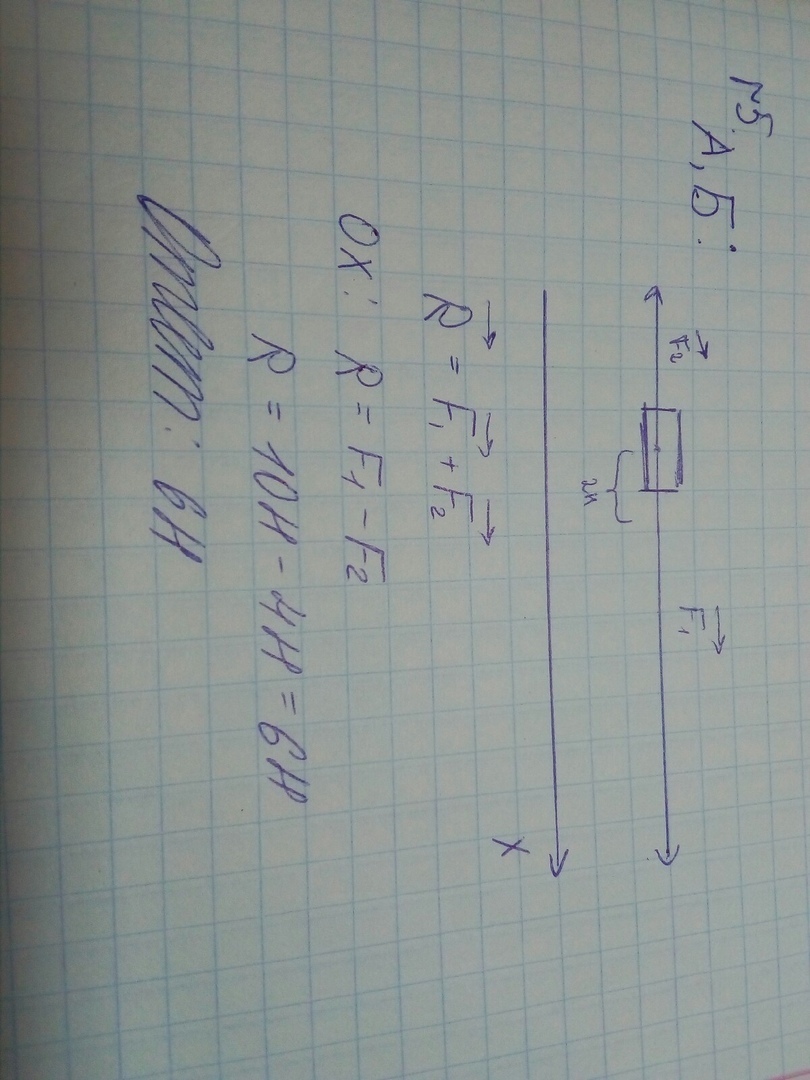 №5.
А, Б:
F₂ F₁
2Н
x
R = F₁ + F₂
Ox: R = F₁ - F₂
R = 10Н - 4Н = 6Н
Ответ: 6Н